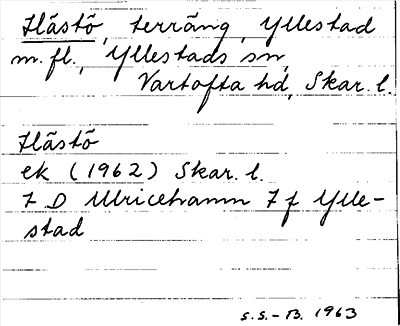 Hästö, terräng, Yllestad
m.fl., Yllestads sn,
Vartofta hd, Skar. l.
Hästö
ek (1962) Skar. l.
7 D Ulricehamn 7 f Ylle-
stad
S.S.-B. 1963